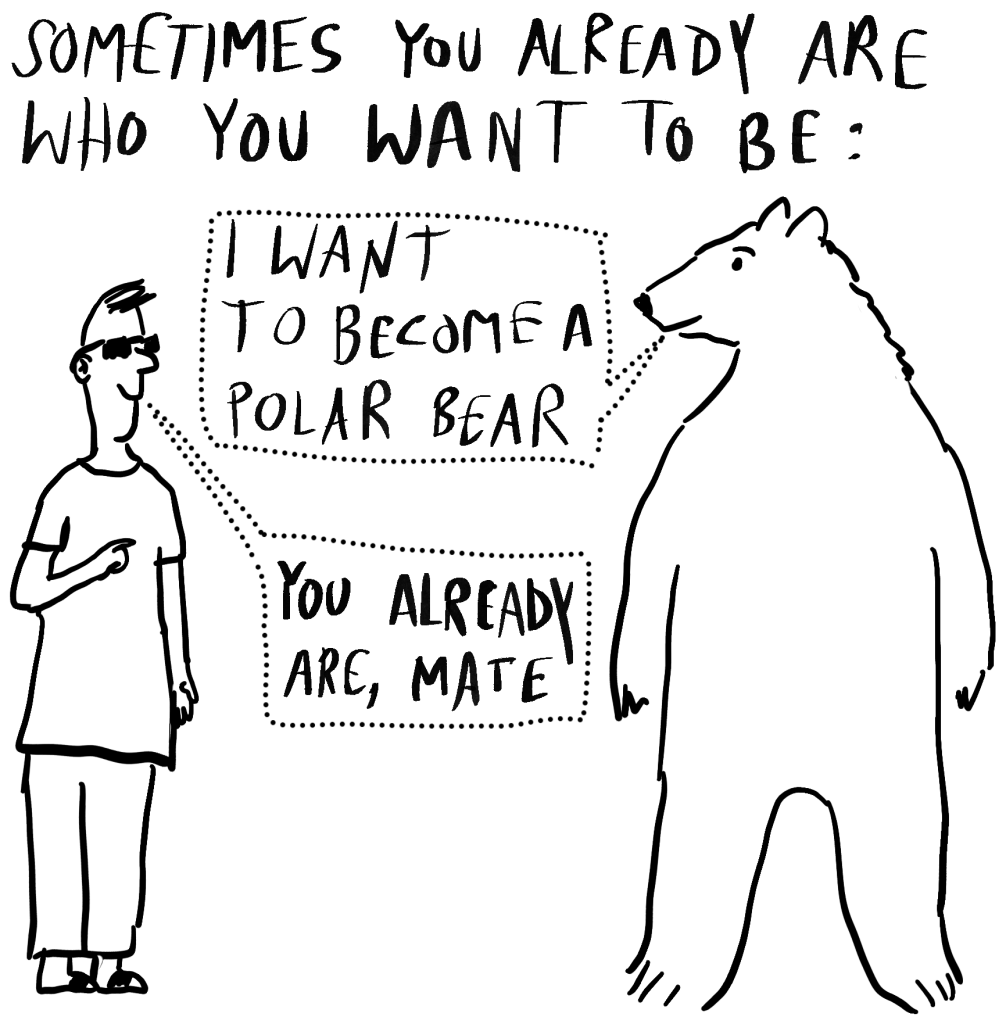 SOMETIMES YOU ALREADY ARE
WHO YOU WANT TO BE:
I WANT
TO BECOME A
POLAR BEAR
YOU ALREADY
ARE, MATE